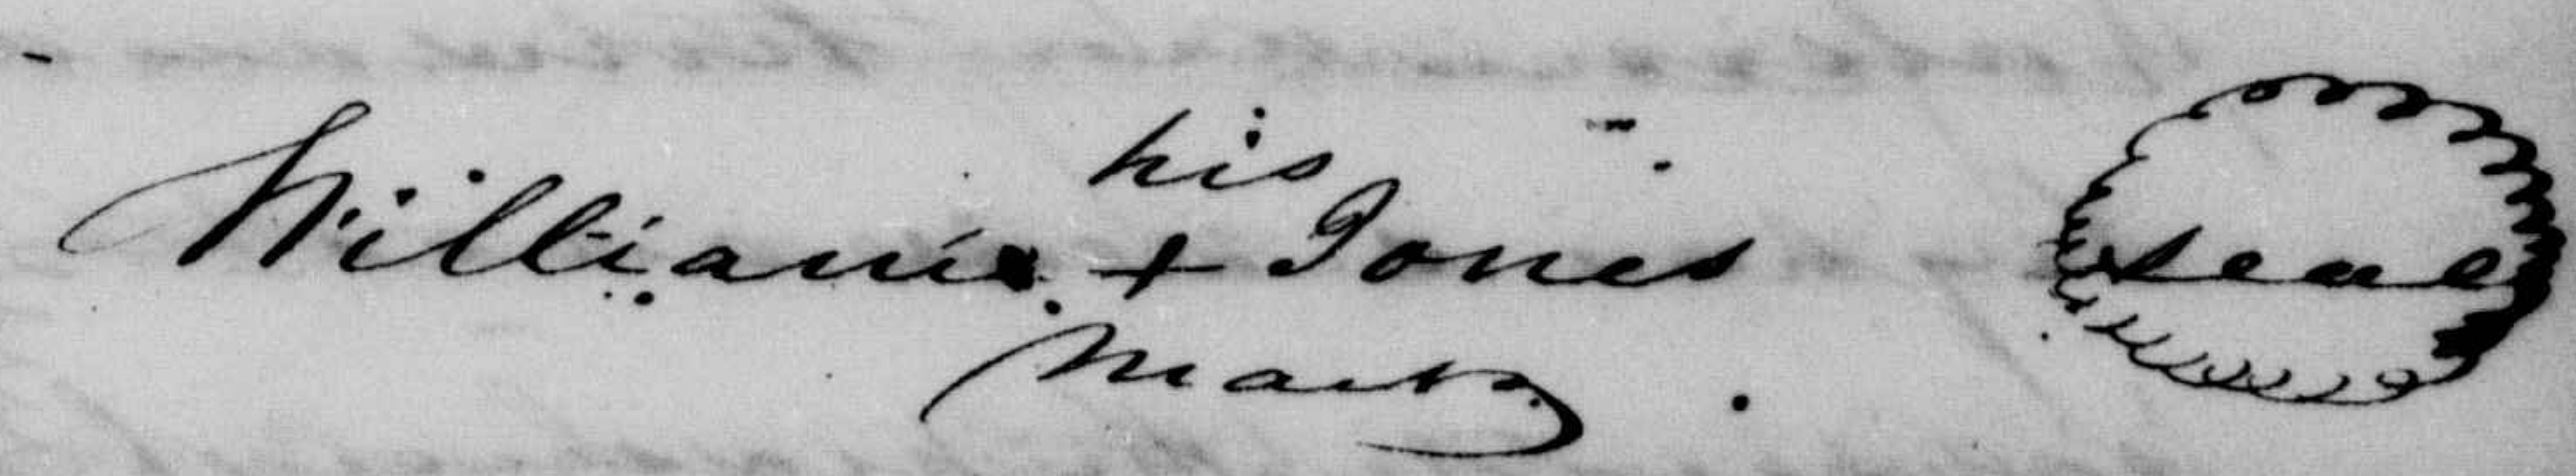 his
William + Jones seal
mark